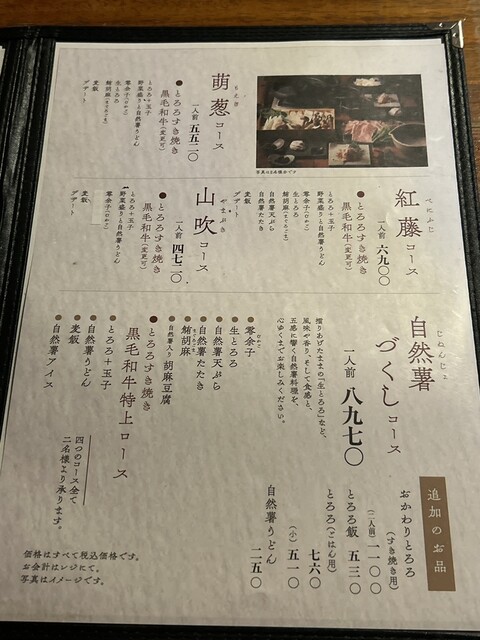 追加のお品
おかわりとろろ
(すき焼き用)
(二人前) 一一〇〇
とろろ飯 五三〇
とろろ(ごはん用)
七六〇
(小) 五一〇
自然薯うどん
二五〇
じねんじょ
自然薯
づくしコース
一人前 八九七〇
摺りあげたままの「生とろろ」など、
風味や香り、そして食感と、
五感に響く自然薯料理を、
心ゆくまでお楽しみください。
●零余子
むかご
●生とろろ
●自然薯天ぷら
●自然薯たたき
●鮪胡麻
●自然薯入り胡麻豆腐
●とろろすき焼き
黒毛和牛特上コース
●とろろ+玉子
●自然薯うどん
●麦飯
●自然薯アイス
四つのコース全て
二名様より承ります。
価格はすべて税込価格です。
お会計はレジにて。
写真はイメージです。
べにふじ
紅藤コース
一人前 六九〇〇
●とろろすき焼き
黒毛和牛(変更可)
とろろ+玉子
野菜盛りと自然薯うどん
零余子(むかご)
生とろろ
鮪胡麻(まぐろごま)
自然薯天ぷら
自然薯たたき
麦飯
デザート
やまぶき
山吹コース
一人前 四七二〇
●とろろすき焼き
黒毛和牛(変更可)
とろろ+玉子
野菜盛りと自然薯うどん
零余子(むかご)
麦飯
デザート
もえぎ
萌葱コース
一人前 五五二〇
●とろろすき焼き
黒毛和牛(変更可)
とろろ+玉子
野菜盛りと自然薯うどん
零余子(むかご)
生とろろ
鮪胡麻(まぐろごま)
麦飯
デザート